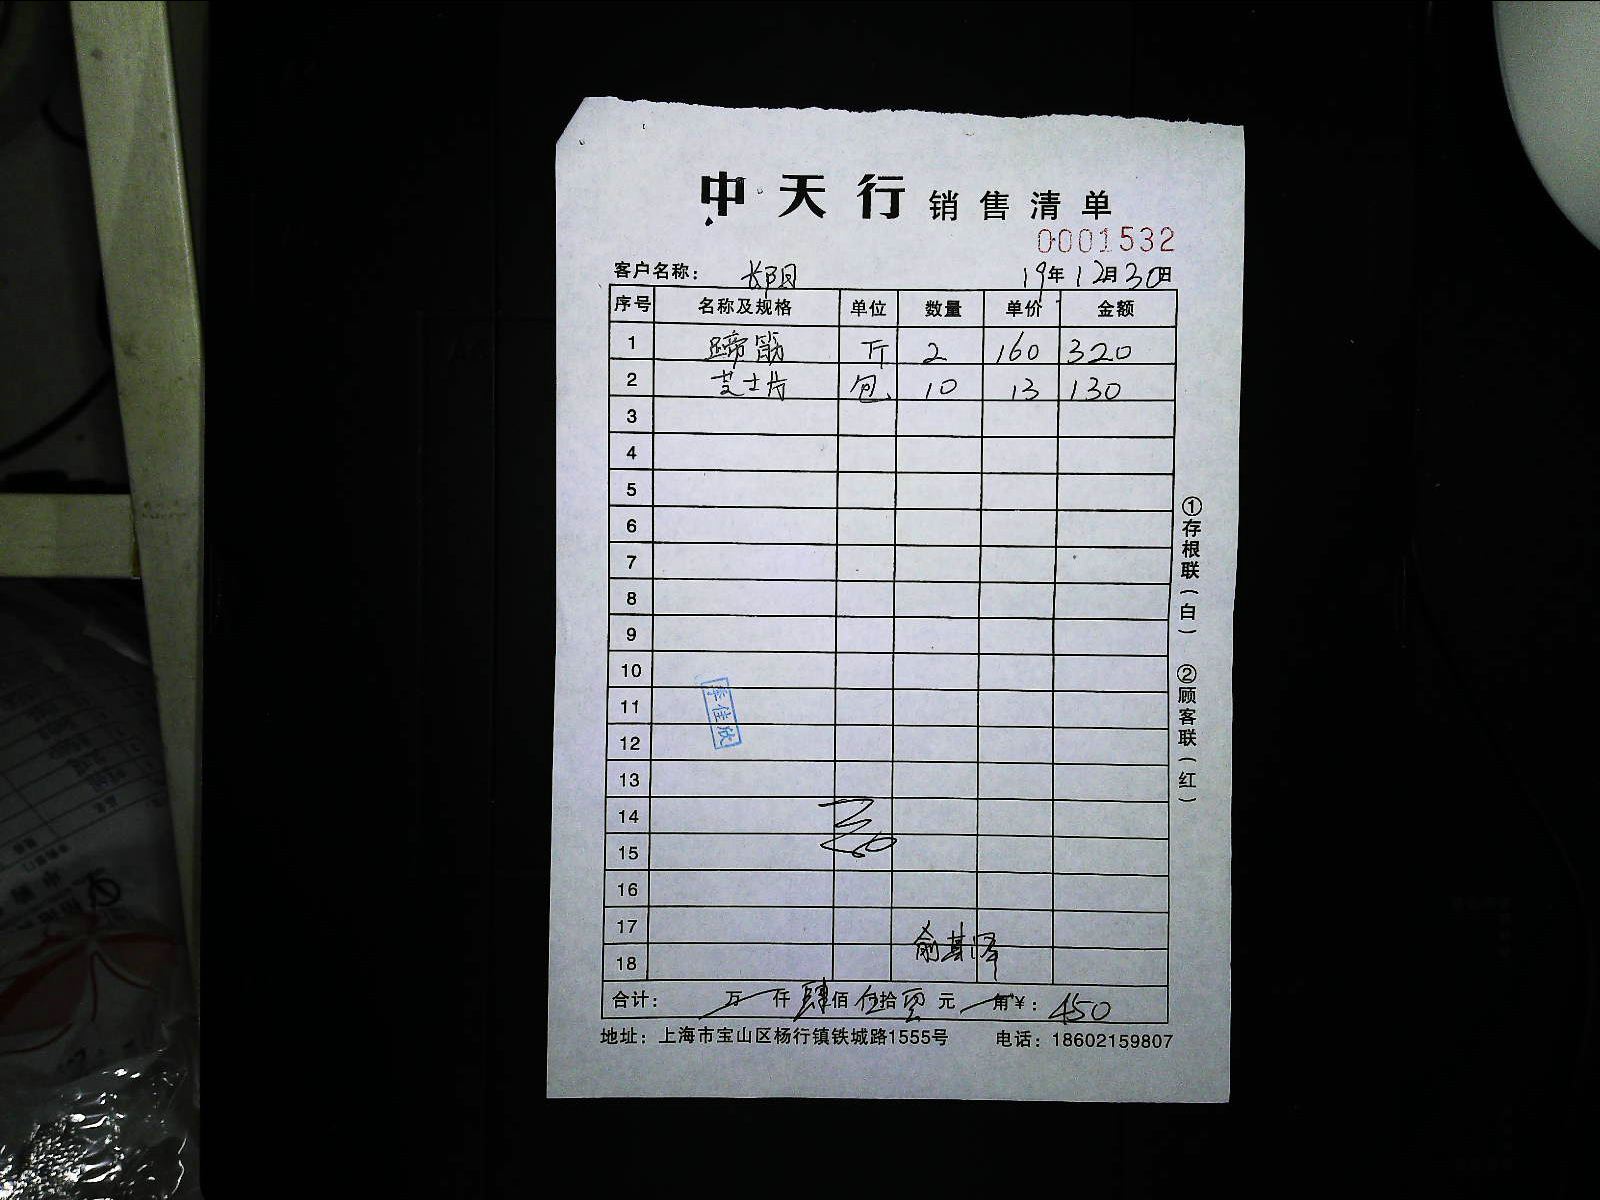 中天行 销售清单
0001532
客户名称： 长阳 19年12月30日
序号 名称及规格 单位 数量 单价 金额
1 蹄筋 斤 2 160 320
2 芝士片 包 10 13 130
3
4
5
6
7
8
9
10
11
12
13
14
15
16
17
18
李佳欣
俞基泽
合计： 万 仟 肆佰 伍拾 零 元 角 ¥： 450
地址：上海市宝山区杨行镇铁城路1555号 电话：18602159807
①存根联（白） ②顾客联（红）